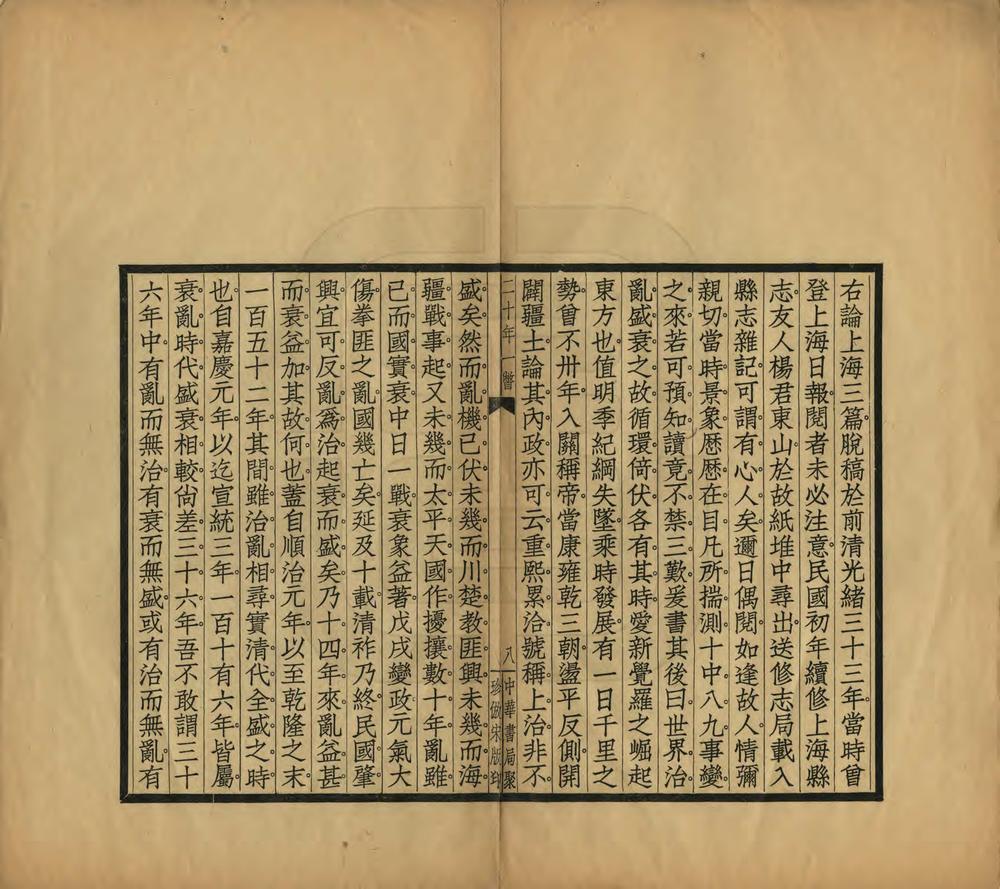 右論上海三篇脫稿於前清光緒三十三年當時曾
登上海日報閱者未必注意民國初年續修上海縣
志友人楊君東山於故紙堆中尋出送修志局載入
縣志雜記可謂有心人矣邇日偶閱如逢故人情彌
親切當時景象歷歷在目凡所揣測十中八九事變
之來若可預知讀竟不禁三歎爰書其後曰世界治
亂盛衰之故循環倚伏各有其時愛新覺羅之崛起
東方也値明季紀綱失墜乘時發展有一日千里之
勢曾不卅年入關稱帝當康雍乾三朝盪平反側開
闢疆土論其內政亦可云重熙累洽號稱上治非不
二十年一瞥
八
中華書局聚
珍倣宋版印
盛矣然而亂機已伏未幾而川楚教匪興未幾而海
疆戰事起又未幾而太平天國作擾攘數十年亂雖
已而國實衰中日一戰衰象益著戊戌變政元氣大
傷拳匪之亂國幾亡矣延及十載清祚乃終民國肇
興宜可反亂爲治起衰而盛矣乃十四年來亂益甚
而衰益加其故何也蓋自順治元年以至乾隆之末
一百五十二年其間雖治亂相尋實清代全盛之時
也自嘉慶元年以迄宣統三年一百十有六年皆屬
衰亂時代盛衰相較尙差三十六年吾不敢謂三十
六年中有亂而無治有衰而無盛或有治而無亂有